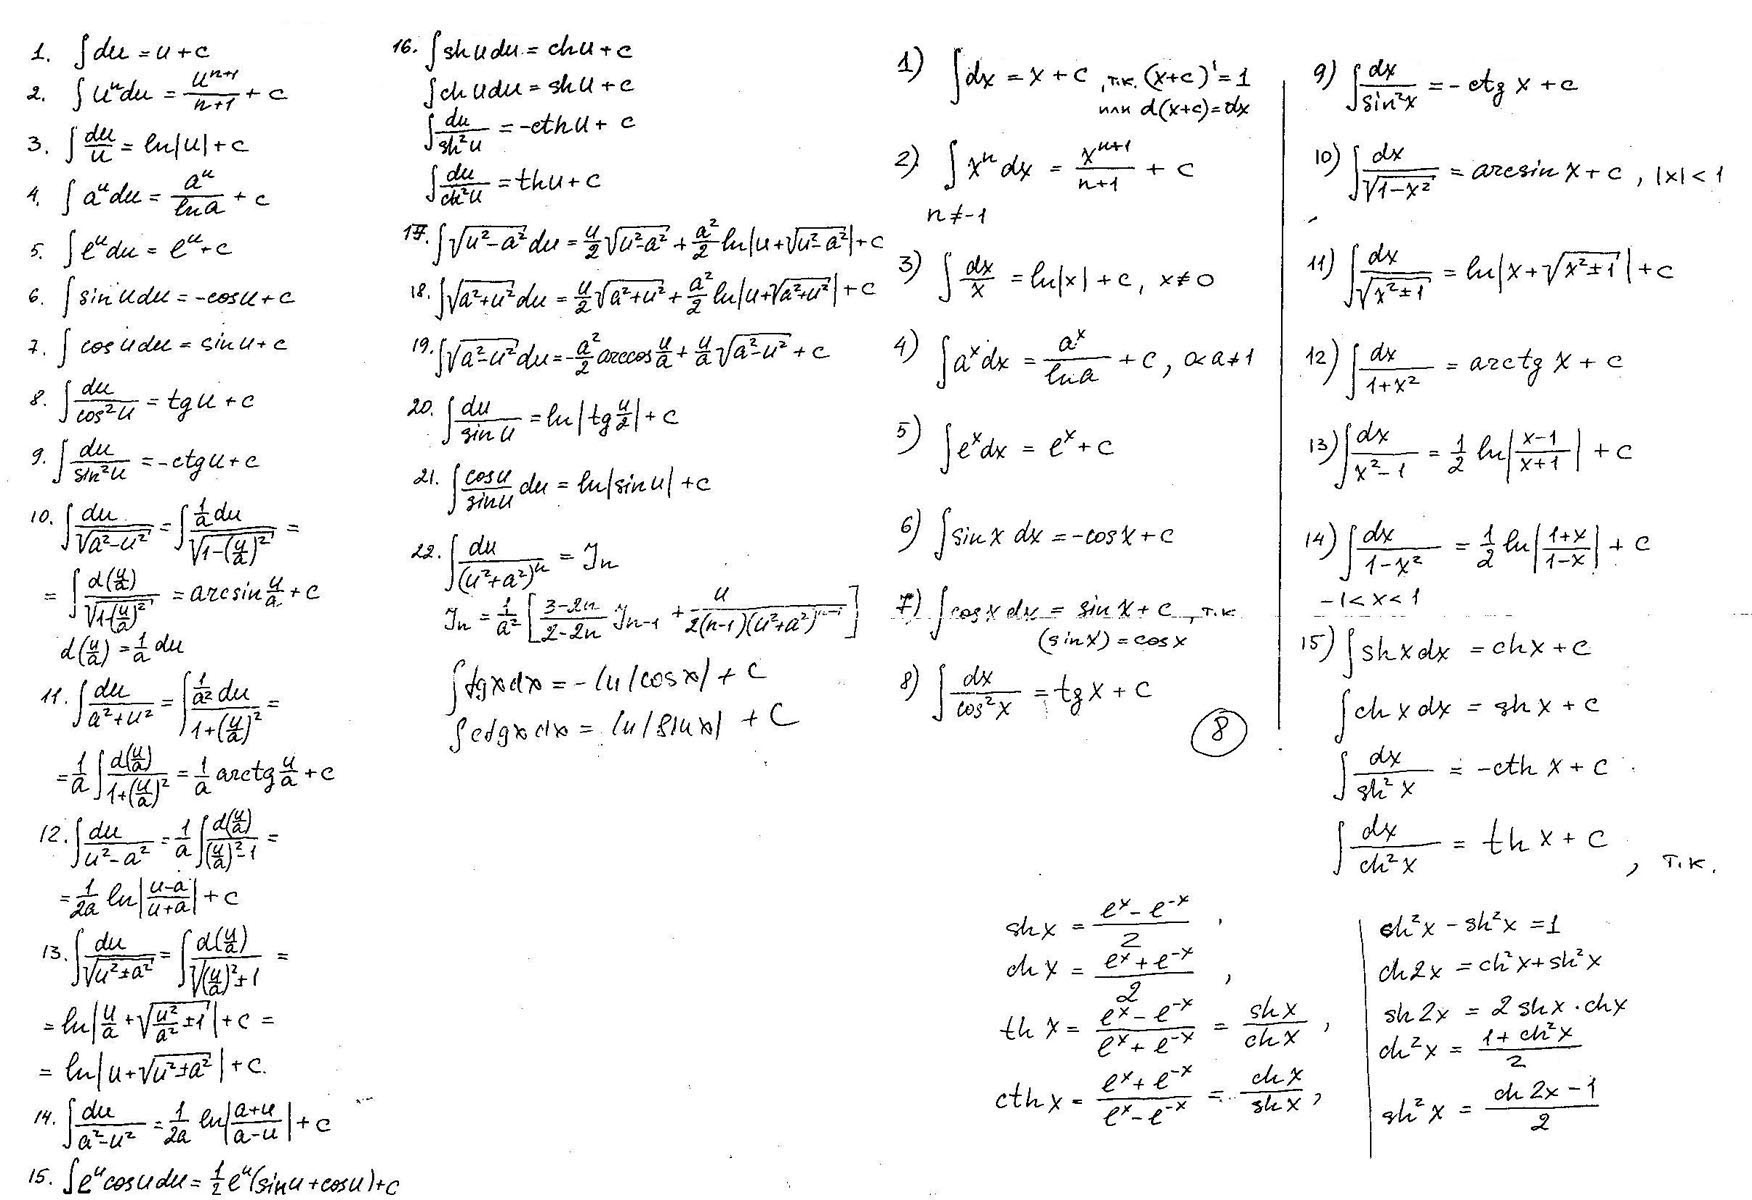 1. ∫du = u + c
2. ∫uⁿdu = uⁿ⁺¹/(n+1) + c
3. ∫du/u = ln|u| + c
4. ∫aᵘdu = aᵘ/lna + c
5. ∫eᵘdu = eᵘ + c
6. ∫sin u du = -cos u + c
7. ∫cos u du = sin u + c
8. ∫du/cos²u = tg u + c
9. ∫du/sin²u = -ctg u + c
10. ∫du/√(a²-u²) = ∫(1/a)du/√(1-(u/a)²) =
= ∫d(u/a)/√(1-(u/a)²) = arcsin u/a + c
d(u/a) = 1/a du
11. ∫du/(a²+u²) = ∫(1/a²)du/(1+(u/a)²) =
= 1/a ∫d(u/a)/(1+(u/a)²) = 1/a arctg u/a + c
12. ∫du/(u²-a²) = 1/a ∫d(u/a)/((u/a)²-1) =
= 1/2a ln|(u-a)/(u+a)| + c
13. ∫du/√(u²±a²) = ∫d(u/a)/√((u/a)²±1) =
= ln|u/a + √(u²/a² ±1)| + c =
= ln|u + √(u²±a²)| + c.
14. ∫du/(a²-u²) = 1/2a ln|(a+u)/(a-u)| + c
15. ∫eᵘcos u du = 1/2 eᵘ(sin u + cos u) + c
16. ∫sh u du = ch u + c
∫ch u du = sh u + c
∫du/sh²u = -cth u + c
∫du/ch²u = th u + c
17. ∫√(u²-a²) du = u/2 √(u²-a²) + a²/2 ln|u+√(u²-a²)| + c
18. ∫√(a²+u²) du = u/2 √(a²+u²) + a²/2 ln|u+√(a²+u²)| + c
19. ∫√(a²-u²) du = -a²/2 arccos u/a + u/a √(a²-u²) + c
20. ∫du/sin u = ln|tg u/2| + c
21. ∫cos u/sin u du = ln|sin u| + c
22. ∫du/(u²+a²)ⁿ = Jn
Jn = 1/a² [(3-2n)/(2-2n) Jn-1 + u/(2(n-1)(u²+a²)ⁿ⁻¹)]
∫tgx dx = -ln|cosx| + C
∫ctgx dx = ln|sinx| + C
1) ∫dx = x + c, т.к. (x+c)' = 1
или d(x+c) = dx
2) ∫xⁿdx = xⁿ⁺¹/(n+1) + c
n ≠ -1
3) ∫dx/x = ln|x| + c, x ≠ 0
4) ∫aˣdx = aˣ/lna + c, o<a≠1
5) ∫eˣdx = eˣ + c
6) ∫sin x dx = -cos x + c
7) ∫cos x dx = sin x + c, т.к.
(sin x)' = cos x
8) ∫dx/cos²x = tg x + c
8
9) ∫dx/sin²x = -ctg x + c
10) ∫dx/√(1-x²) = arcsin x + c, |x| < 1
11) ∫dx/√(x²±1) = ln|x + √(x²±1)| + c
12) ∫dx/(1+x²) = arctg x + c
13) ∫dx/(x²-1) = 1/2 ln|(x-1)/(x+1)| + c
14) ∫dx/(1-x²) = 1/2 ln|(1+x)/(1-x)| + c
-1 < x < 1
15) ∫sh x dx = ch x + c
∫ch x dx = sh x + c
∫dx/sh²x = -cth x + c
∫dx/ch²x = th x + c, т.к.
sh x = (eˣ - e⁻ˣ)/2,
ch x = (eˣ + e⁻ˣ)/2,
th x = (eˣ - e⁻ˣ)/(eˣ + e⁻ˣ) = sh x/ch x,
cth x = (eˣ + e⁻ˣ)/(eˣ - e⁻ˣ) = ch x/sh x,
ch²x - sh²x = 1
ch2x = ch²x + sh²x
sh2x = 2 sh x · ch x
ch²x = (1 + ch²x)/2
sh²x = (ch 2x - 1)/2